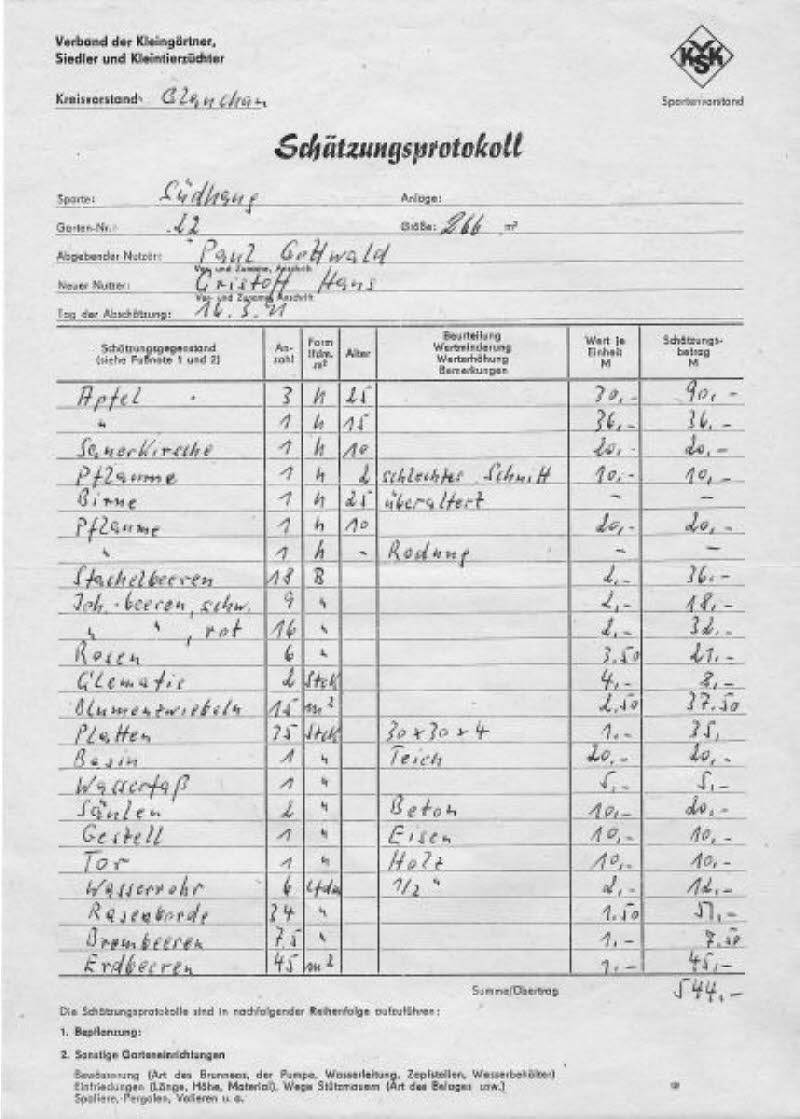 Verband der Kleingärtner,
Siedler und Kleintierzüchter
VKSK
Kreisvorstand: Glauchau
Spartenvorstand
Schätzungsprotokoll
Sparte: Südhang Anlage:
Garten-Nr.: 22 Größe: 266 m²
Abgebender Nutzer: Paul Gottwald
Vor- und Zuname, Anschrift
Neuer Nutzer: Cristoff Hans
Vor- und Zuname, Anschrift
Tag der Abschätzung: 16.3.
Schätzungsgegenstand (siehe Fußnote 1 und 2) An-zahl Form lfdm. m² Alter Beurteilung Wertminderung Werterhöhung Bemerkungen Wert je Einheit M Schätzungs-betrag M
Apfel 3 h 25 30,- 90,-
" 1 h 15 36,- 36,-
Sauerkirsche 1 h 10 20,- 20,-
Pflaume 1 h 2 schlechter Schnitt 10,- 10,-
Birne 1 h 25 überaltert - -
Pflaume 1 h 10 20,- 20,-
" 1 h - Rodung - -
Stachelbeeren 18 B 2,- 36,-
Joh.-beeren, schw. 9 " 2,- 18,-
" " , rot 16 " 2,- 32,-
Rosen 6 " 3.50 21,-
Clematis 2 Stck 4,- 8,-
Blumenzwiebeln 15 m² 2.50 37.50
Platten 35 Stck 30 x 30 x 4 1,- 35,
Basin 1 " Teich 20,- 20,-
Wasserfaß 1 " 5,- 5,-
Säulen 2 " Beton 10,- 20,-
Gestell 1 " Eisen 10,- 10,-
Tor 1 " Holz 10,- 10,-
Wasserrohr 6 lfdm 1/2 " 2,- 12,-
Rasenborde 34 " 1.50 51,-
Brombeeren 7.5 " 1,- 7.50
Erdbeeren 45 m² 1,- 45,-
Summe/Übertrag 544,-
Die Schätzungsprotokolle sind in nachfolgender Reihenfolge aufzuführen:
1. Bepflanzung:
2. Sonstige Garteneinrichtungen
Bewässerung (Art des Brunnens, der Pumpe, Wasserleitung, Zapfstellen, Wasserbehälter)
Einfriedungen (Länge, Höhe, Material), Wege Stützmauern (Art des Belages usw.)
Spaliere, Pergolen, Volieren u. a.